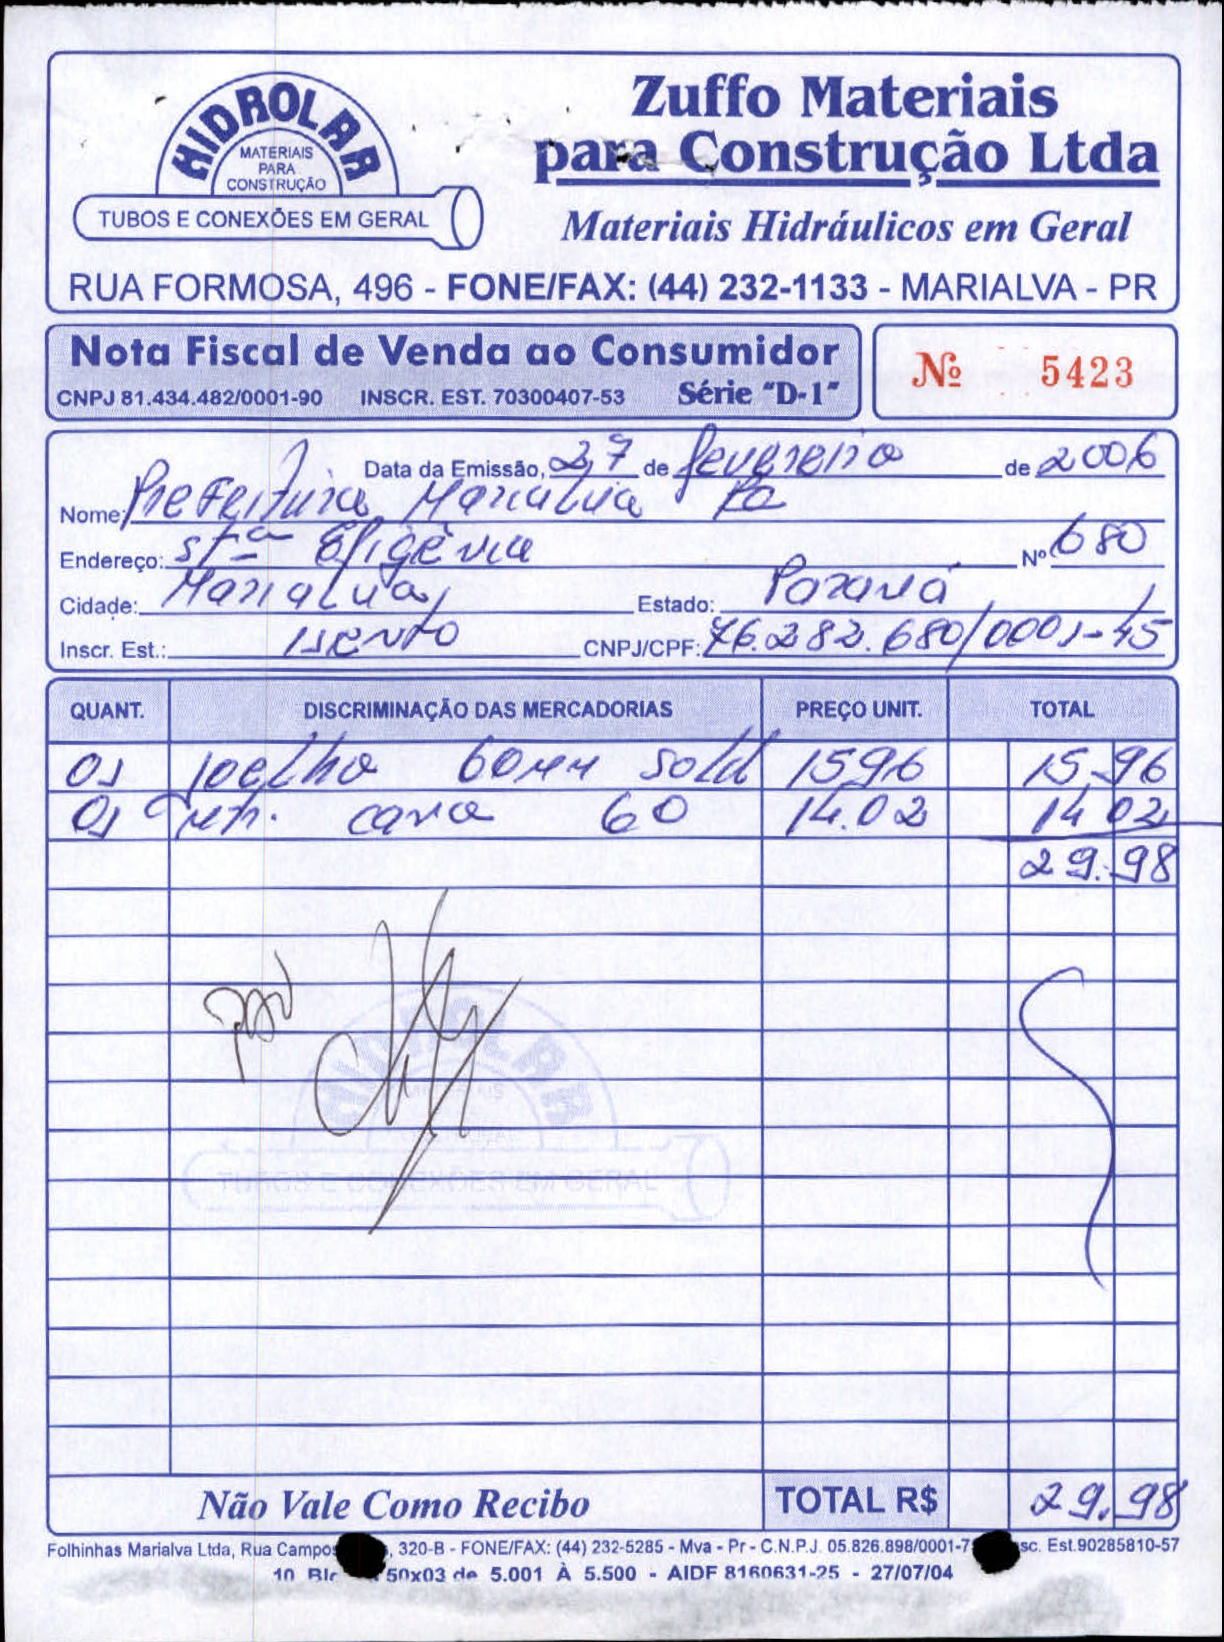 HIDROLAR
MATERIAIS
PARA
CONSTRUÇÃO
TUBOS E CONEXÕES EM GERAL
Zuffo Materiais
para Construção Ltda
Materiais Hidráulicos em Geral
RUA FORMOSA, 496 - FONE/FAX: (44) 232-1133 - MARIALVA - PR
Nota Fiscal de Venda ao Consumidor
CNPJ 81.434.482/0001-90 INSCR. EST. 70300407-53 Série "D-1"
Nº 5423
Data da Emissão, 27 de fevereiro de 2006
Nome: Prefeitura Marialva
Endereço: Stª Efigênia Nº 680
Cidade: Marialva Estado: Paraná
Inscr. Est.: Isento CNPJ/CPF: 76.282.680/0001-45
QUANT. DISCRIMINAÇÃO DAS MERCADORIAS PREÇO UNIT. TOTAL
01 joelho 60mm sold 1596 15.96
01 cano 60 14.02 14 02
29.98
HIDROLAR
MATERIAIS
TUBOS E CONEXÕES EM GERAL
Não Vale Como Recibo TOTAL R$ 29.98
Folhinhas Marialva Ltda, Rua Campos , 320-B - FONE/FAX: (44) 232-5285 - Mva - Pr - C.N.P.J. 05.826.898/0001-7 sc. Est.90285810-57
10 Blc 50x03 de 5.001 À 5.500 - AIDF 8160631-25 - 27/07/04